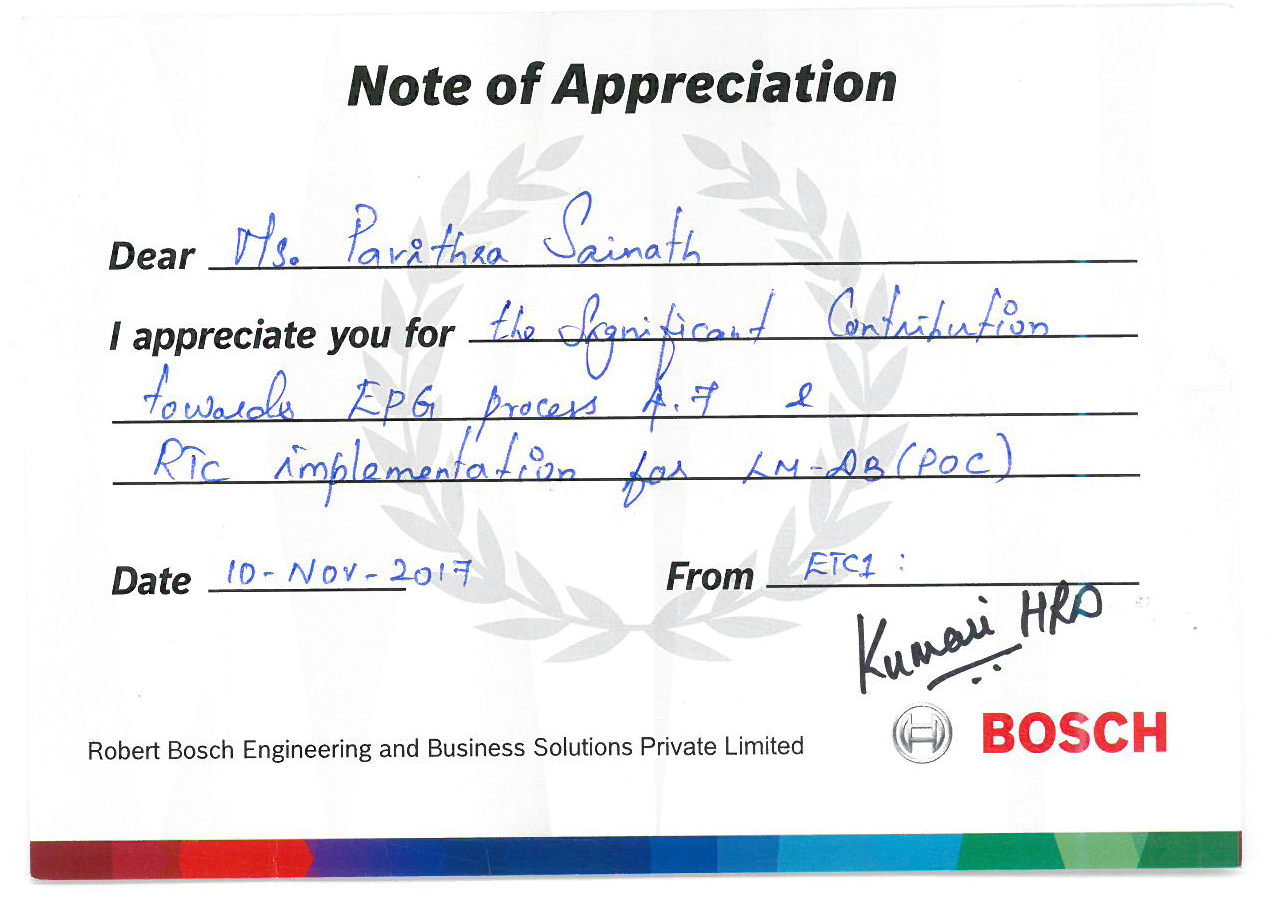 Note of Appreciation
Dear Ms. Pavithra Sainath
I appreciate you for the Significant Contribution
towards EPG process 4.7 &
RTC implementation for LM-DB (POC)
Date 10-Nov-2017 From ETC1 :
Kumari HRD
BOSCH
Robert Bosch Engineering and Business Solutions Private Limited